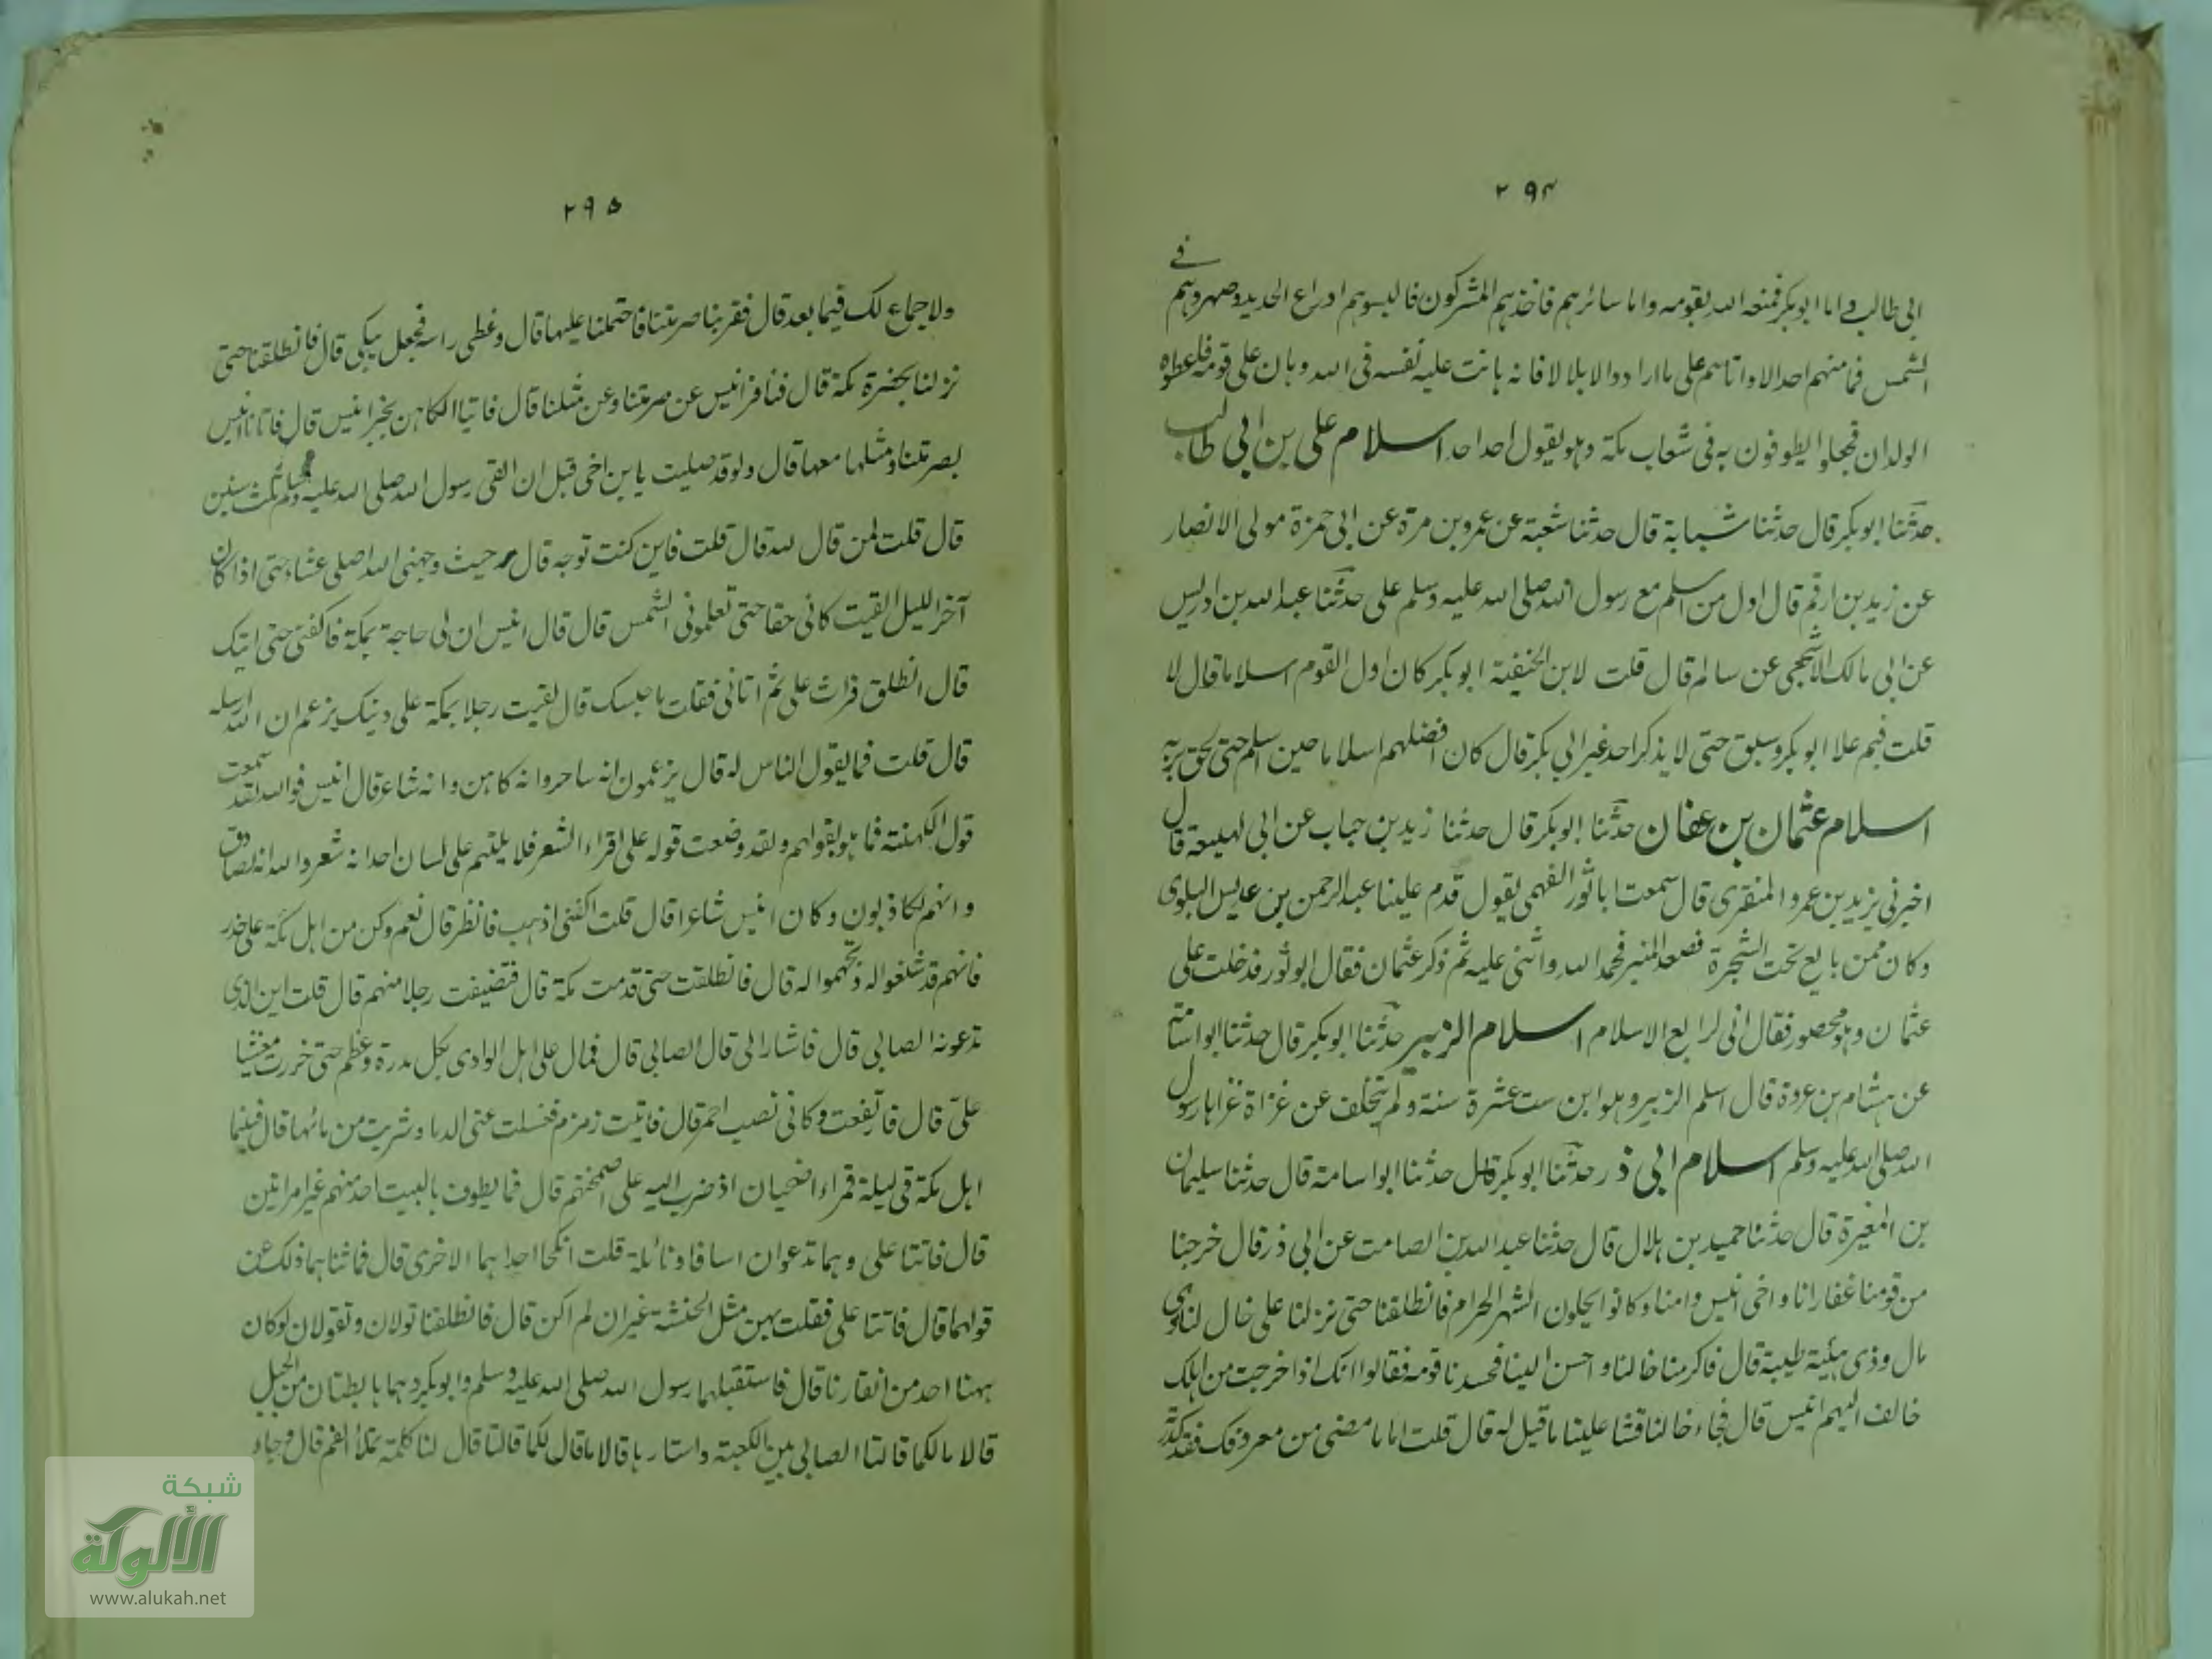 ٢٩٤
ابى طالب واما ابو بكر فمنعه الله بقومه واما سائرهم فاخذهم المشركون فالبسوهم ادراع الحديد وصهروهم في
الشمس فما منهم احد الا واتاهم على ما ارادوا الا بلالا فانه هانت عليه نفسه فى الله وهان على قومه فاعطوه
الولدان فجعلوا يطوفون به فى شعاب مكة وهو يقول احد احد اسلام على بن ابى طالب
حدثنا ابو بكر قال حدثنا شبابة قال حدثنا شعبة عن عمرو بن مرة عن ابى حمزة مولى الانصار
عن زيد بن ارقم قال اول من اسلم مع رسول الله صلى الله عليه وسلم على حدثنا عبد الله بن ادريس
عن ابى مالك الاشجعى عن سالم قال قلت لابن الحنفية ابو بكر كان اول القوم اسلاما قال لا
قلت فبم علا ابو بكر وسبق حتى لا يذكر احد غير ابى بكر قال كان افضلهم اسلاما حين اسلم حتى لحق بربه
اسلام عثمان بن عفان حدثنا ابو بكر قال حدثنا زيد بن حباب عن ابى لهيعة قال
اخبرنى يزيد بن عمرو المنقرى قال سمعت ابا ثور الفهمى يقول قدم علينا عبد الرحمن بن عديس البلوى
وكان ممن بايع تحت الشجرة فصعد المنبر فحمد الله واثنى عليه ثم ذكر عثمان فقال ابو ثور فدخلت على
عثمان وهو محصور فقال انى لرابع الاسلام اسلام الزبير حدثنا ابو بكر قال حدثنا ابو اسامة
عن هشام بن عروة قال اسلم الزبير وهو ابن ست عشرة سنة ولم يتخلف عن غزاة غزاها رسول
الله صلى الله عليه وسلم اسلام ابى ذر حدثنا ابو بكر قال حدثنا ابو اسامة قال حدثنا سليمان
بن المغيرة قال حدثنا حميد بن هلال قال حدثنا عبد الله بن الصامت عن ابى ذر قال خرجنا
من قومنا غفار انا واخى انيس وامنا وكانوا يحلون الشهر الحرام فانطلقنا حتى نزلنا على خال لنا ذى
مال وذى هيئة طيبة قال فاكرمنا خالنا واحسن الينا فحسدنا قومه فقالوا انك اذا خرجت من اهلك
خالف اليهم انيس قال فجاء خالنا فنثا علينا ما قيل له قال قلت اما ما مضى من معروفك فقد كدرته
٢٩٥
ولا جماع لك فيما بعد قال فقربنا صرمتنا فاحتملنا عليها قال وغطى راسه فجعل يبكى قال فانطلقنا حتى
نزلنا بحضرة مكة قال فنافر انيس عن صرمتنا وعن مثلنا قال فاتيا الكاهن بخبر انيس قال فاتانا انيس
بصرمتنا ومثلها معها قال ولوقد صليت يا بن اخى قبل ان القى رسول الله صلى الله عليه وسلم ثلث سنين
قال قلت لمن قال لله قال قلت فاين كنت توجه قال حيث وجهنى الله اصلى عشاء حتى اذا كان
آخر الليل القيت كانى خفا حتى تعلونى الشمس قال قال انيس ان لى حاجة بمكة فاكفنى حتى اتيك
قال انطلق فراث على ثم اتانى فقلت ما حبسك قال لقيت رجلا بمكة على دينك يزعم ان الله ارسله
قال قلت فما يقول الناس له قال يزعمون انه ساحر وانه كاهن وانه شاعر قال انيس فوالله لقد سمعت
قول الكهنة فما هو بقولهم ولقد وضعت قوله على اقراء الشعر فلا يلتئم على لسان احد انه شعر والله انه لصادق
وانهم لكاذبون وكان انيس شاعرا قال قلت اكفنى اذهب فانظر قال نعم وكن من اهل مكة على حذر
فانهم قد شنفوا له وتجهموا له قال فانطلقت حتى قدمت مكة قال فتضيفت رجلا منهم قال قلت اين الذى
تدعونه الصابى قال فاشار الى قال الصابى قال فمال على اهل الوادى بكل مدرة وعظم حتى خررت مغشيا
على قال فارتفعت وكانى نصب احمر قال فاتيت زمزم فغسلت عنى الدما وشربت من مائها قال فبينما
اهل مكة فى ليلة قمراء اضحيان اذ ضرب الله على اصمختهم قال فما يطوف بالبيت احد منهم غير امراتين
قال فاتتا على وهما تدعوان اسافا ونائلة قلت انكحا احداهما الاخرى قال فما ثناهما ذلك عن
قولهما قال فاتتا على فقلت هن مثل الخشبة غير ان لم اكن قال فانطلقتا تولولان وتقولان لو كان
ههنا احد من انفارنا قال فاستقبلهما رسول الله صلى الله عليه وسلم وابو بكر وهما هابطتان من الجبل
قالا مالكما قالتا الصابى بين الكعبة واستارها قالا ما قال لكما قالتا قال لنا كلمة تملأ الفم قال وجاء
شبكة
الألوكة
www.alukah.net